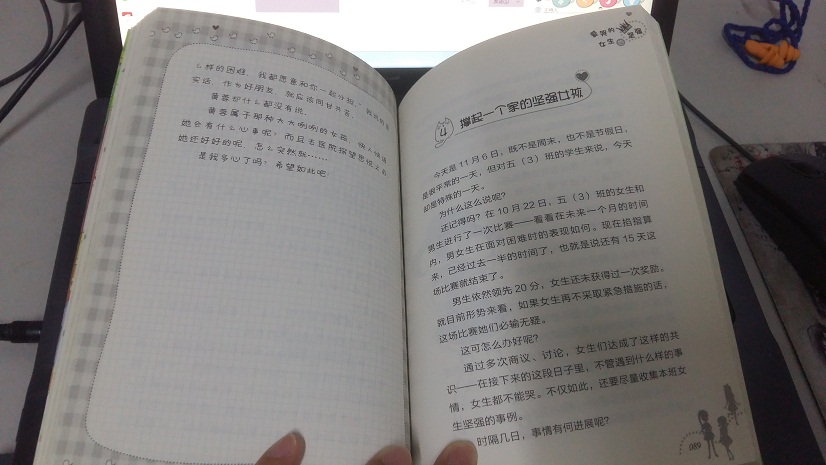 么样的困难，我都愿意和你一起分担。我说的是
实话，作为好朋友，就应该同甘共苦。
黄蓉却什么都没有说。
黄蓉属于那种大大咧咧的女孩，
她会有什么心事呢？而且去医院探望
她还好好的呢，怎么突然就……
是我多心了吗？希望如此吧！
爱哭的
女生
坚强
4
撑起一个家的坚强女孩
今天是11月6日，既不是周末，也不是节假日，
是很平常的一天，但对五（3）班的学生来说，今天
却是特殊的一天。
为什么这么说呢？
还记得吗？在10月22日，五（3）班的女生和
男生进行了一次比赛——看看在未来一个月的时间
内，男女生在面对困难时的表现如何。现在掐指算
来，已经过去一半的时间了，也就是说还有15天这
场比赛就结束了。
男生依然领先20分，女生还未获得过一次奖励。
就目前形势来看，如果女生再不采取紧急措施的话，
这场比赛她们必输无疑。
这可怎么办好呢？
通过多次商议、讨论，女生们达成了这样的共
识——在接下来的这段日子里，不管遇到什么样的事
情，女生都不能哭。不仅如此，还要尽量收集本班女
生坚强的事例。
时隔几日，事情有何进展呢？
089